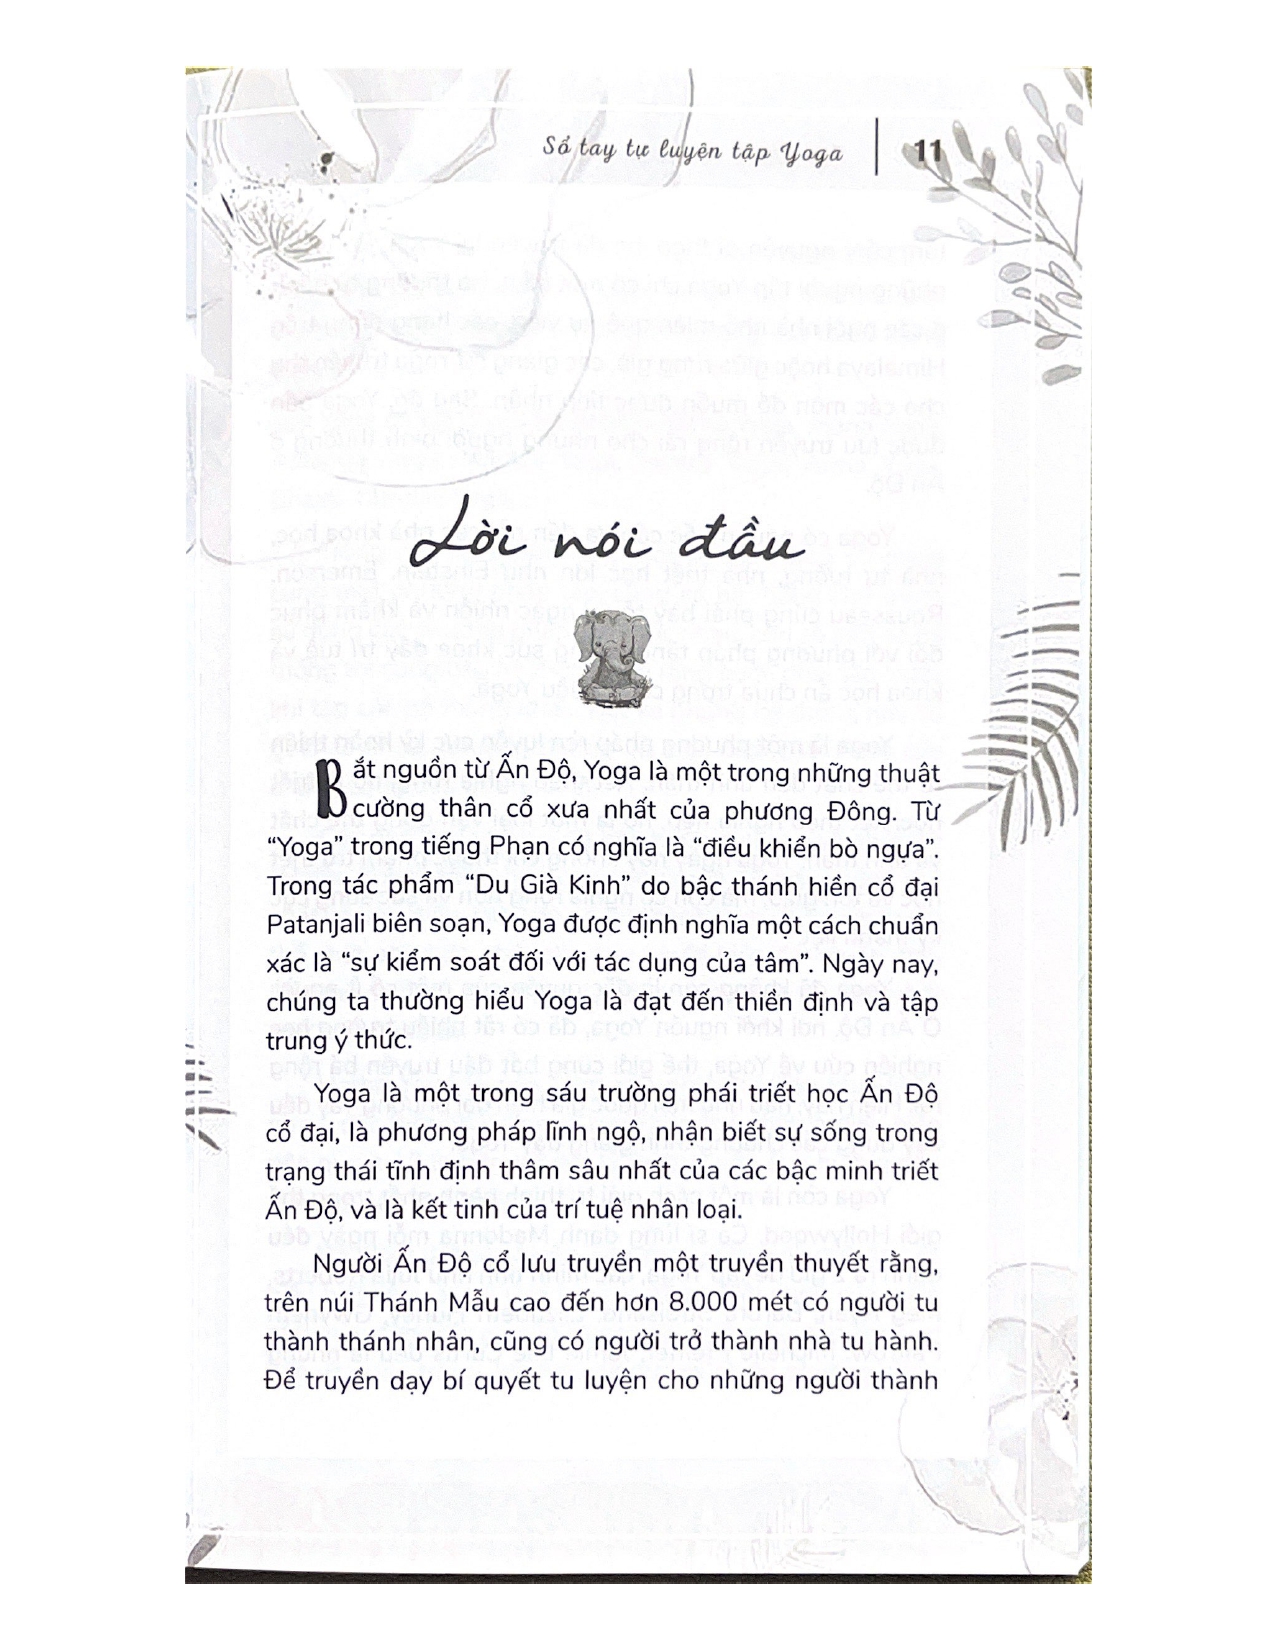 Sổ tay tự luyện tập Yoga
11
Lời nói đầu
Bắt nguồn từ Ấn Độ, Yoga là một trong những thuật
cường thân cổ xưa nhất của phương Đông. Từ
“Yoga” trong tiếng Phạn có nghĩa là “điều khiển bò ngựa”.
Trong tác phẩm “Du Già Kinh” do bậc thánh hiền cổ đại
Patanjali biên soạn, Yoga được định nghĩa một cách chuẩn
xác là “sự kiểm soát đối với tác dụng của tâm”. Ngày nay,
chúng ta thường hiểu Yoga là đạt đến thiền định và tập
trung ý thức.
Yoga là một trong sáu trường phái triết học Ấn Độ
cổ đại, là phương pháp lĩnh ngộ, nhận biết sự sống trong
trạng thái tĩnh định thâm sâu nhất của các bậc minh triết
Ấn Độ, và là kết tinh của trí tuệ nhân loại.
Người Ấn Độ cổ lưu truyền một truyền thuyết rằng,
trên núi Thánh Mẫu cao đến hơn 8.000 mét có người tu
thành thánh nhân, cũng có người trở thành nhà tu hành.
Để truyền dạy bí quyết tu luyện cho những người thành